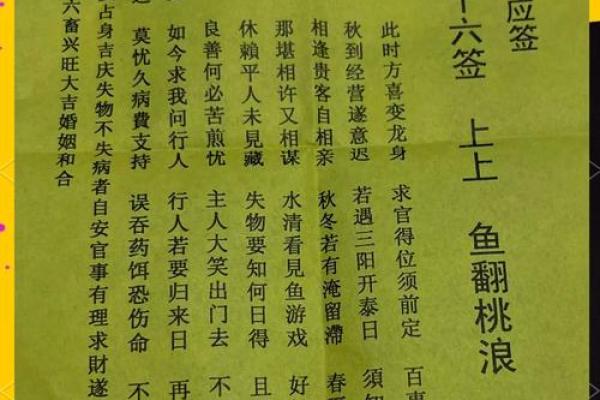 应签
十六签 上上 鱼翻桃浪
此时方喜变龙身 求官得位须前定 百
秋到经营遂意迟 若遇三阳开泰日 须
相逢贵客自相亲 秋冬若有淹留滞 春
那堪相许又相谋 水清看見鱼游戏 好
休賴平人未見藏 失物要知何日得 且
良善何必苦煎忧 主人大笑出门去 不
如今求我问行人 行人若要归来日 再
莫忧久病費支持 误吞药饵恐伤命 不
占身吉庆失物不失病者自安官事有理求財遂
六畜兴旺大吉婚姻和合